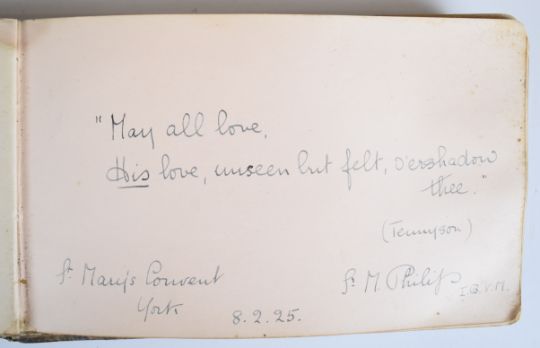 "May all love,
His love, unseen but felt, o'ershadow
thee."
(Tennyson)
St. Mary's Convent
York
8.2.25.
S. M. Philip
I.B.V.M.